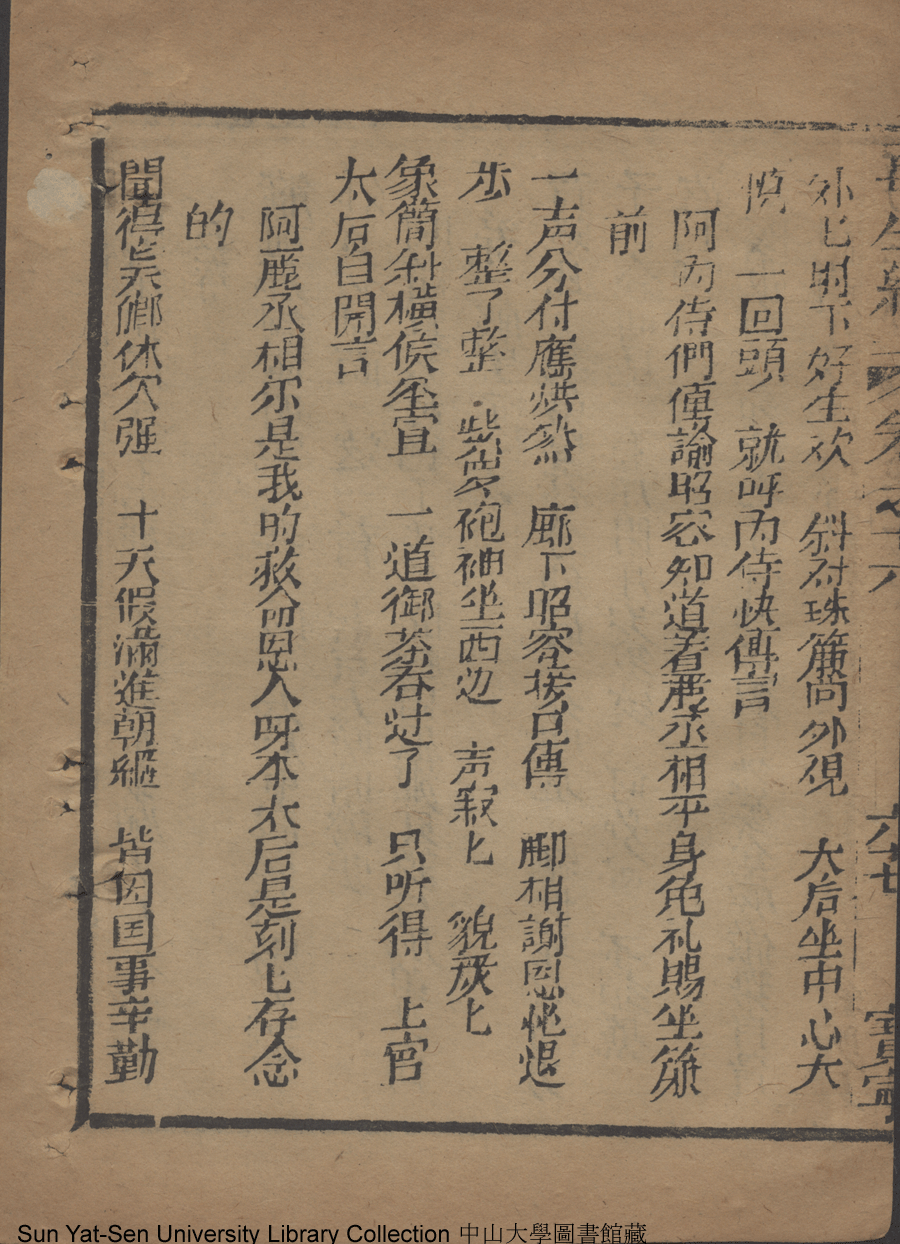 卷之十六
六七
外匕明下好生欢　斜对珠簾向外視　太后坐中心大
悦　一回頭　就呌內侍快傳言
阿內侍們傳諭昭容知道着龐丞相平身免礼賜坐簾
前
一声分付應烘然　廊下昭容接旨傳　龐相謝恩忙退
步　整了整　紫羅袍袖坐西边　声寂匕　貌嚴匕
象簡斜橫候圣宣　一道御茶吞过了　只听得　上官
太后自開言
阿龐丞相尔是我的救命恩人呀本太后是刻匕存念
的
聞得天鄉休欠强　十天假滿進朝綱　皆因国事辛勤
Sun Yat-Sen University Library Collection 中山大學圖書館藏